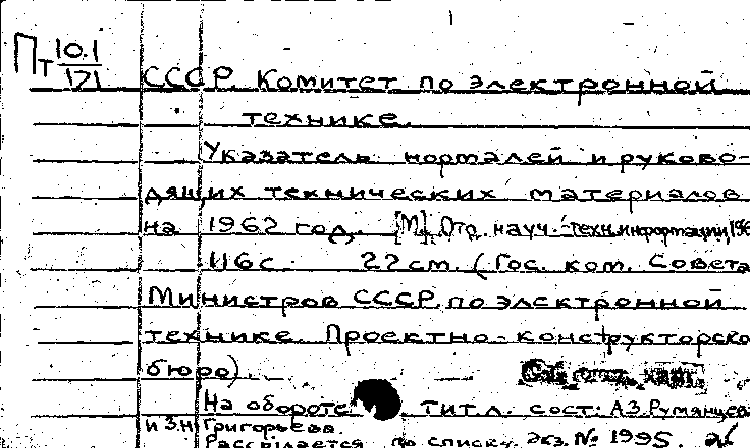 Пт 10.1
171
СССР. Комитет по электронной
технике.
Указатель нормалей и руково-
дящих технических материалов
на 1962 год. [М], Отд. науч.-техн. информации, 196
116 с. 22 см. (Гос. ком. Совета
Министров СССР по электронной
технике. Проектно-конструкторско
бюро).
На обороте тит. л. сост: А.З. Румянцев
и З.Н. Григорьева.
Рассылается по списку. Экз. № 1995.